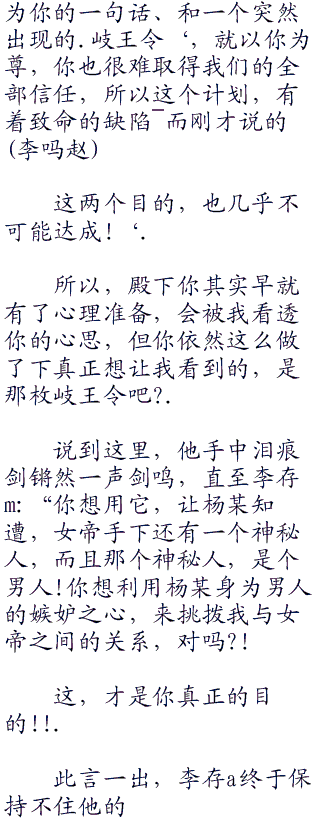 为你的一句话、和一个突然
出现的.岐王令‘，就以你为
尊，你也很难取得我们的全
部信任，所以这个计划，有
着致命的缺陷¯而刚才说的
(李吗赵)
这两个目的，也几乎不
可能达成！‘.
所以，殿下你其实早就
有了心理准备，会被我看透
你的心思，但你依然这么做
了下真正想让我看到的，是
那枚岐王令吧?.
说到这里，他手中泪痕
剑锵然一声剑鸣，直至李存
m:“你想用它，让杨某知
遭，女帝手下还有一个神秘
人，而且那个神秘人，是个
男人!你想利用杨某身为男人
的嫉妒之心，来挑拨我与女
帝之间的关系，对吗?!
这，才是你真正的目
的!!.
此言一出，李存a终于保
持不住他的